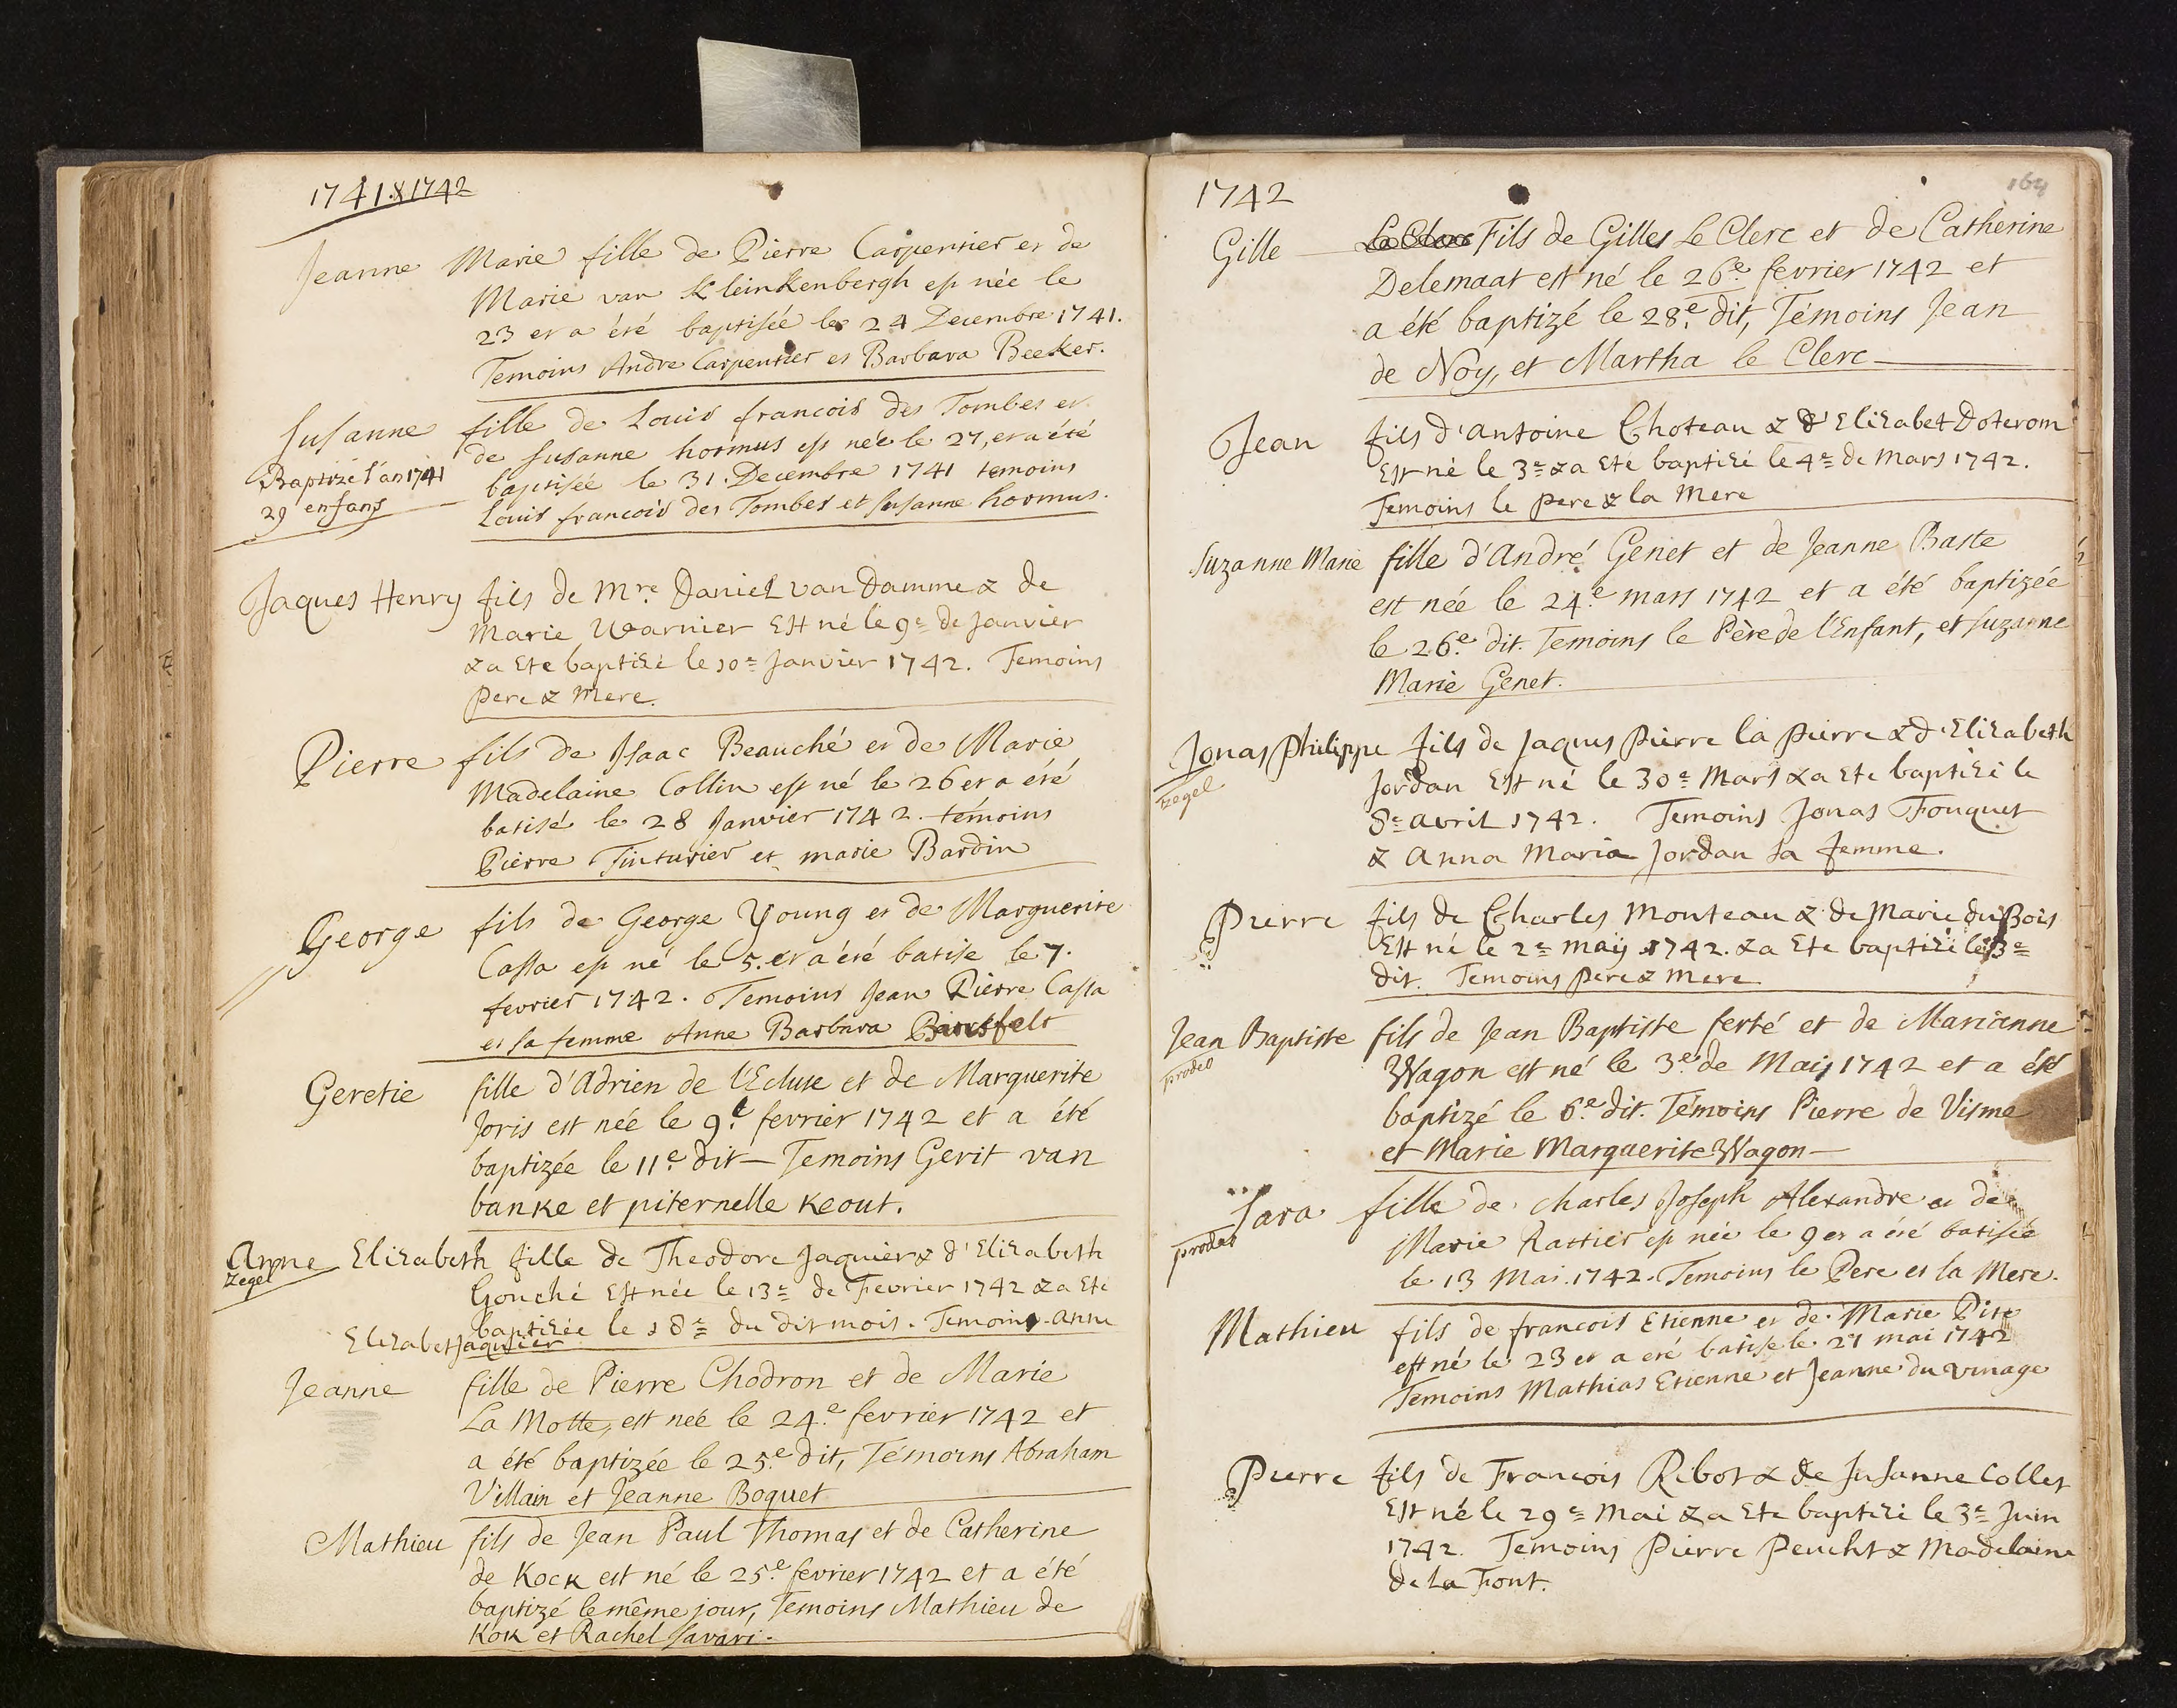 1741 & 1742
Jeanne Marie fille de Pierre Carpentier et de
Marie van Kleinkenbergh est née le
23 et a été baptisée le 24 Decembre 1741.
Temoins Andre Carpentier et Barbara Beeker.
Susanne fille de Louis francois des Tombes et
de susanne hormus est née le 27, et a été
Baptizé l'an 1741
baptisée le 31. Decembre 1741 temoins
29 enfans
Louis francois des Tombes et susanne hormus.
Jaques Henry fils de Mre. Daniel van Damme & de
Marie Warnier Est né le 9e de Janvier
& a Ete baptizé le 10e Janvier 1742. Temoins
pere & mere.
Pierre fils de Isaac Beauché et de Marie
Madelaine Collin est né le 26 et a été
batisé le 28 Janvier 1742. témoins
Pierre Tinturier et marie Bardin
George fils de George Young et de Marguerite
Cassa est né le 5. et a été batise le 7.
fevrier 1742. Temoins Jean Pierre Cassa
et sa femme Anne Barbara
Geretie fille d'Adrien de l'Ecluse et de Marguerite
Joris est née le 9e. fevrier 1742 et a été
baptizée le 11e. dit — Temoins Gerit van
banke et piternelle Keout.
Anne Elizabeth fille de Theodore Jaquier & d'Elizabeth
zegel
Gouché Est née le 13e de Fevrier 1742 & a Eté
baptizée le 18e du dit mois. Temoins Anne
Elizabet Jaquier
Jeanne fille de Pierre Chodron et de Marie
La Motte, est neé le 24e. fevrier 1742 et
a été baptizée le 25e. dit, Témoins Abraham
Villain et Jeanne Boquet
Mathieu fils de Jean Paul Thomas et de Catherine
de Kock est né le 25e. fevrier 1742 et a été
baptizé le même jour, Temoins Mathieu de
Kok et Rachel Savari.
1742
164
Gille Le Clerc Fils de Gilles Le Clerc et de Catherine
Delemaat est né le 26e. fevrier 1742 et
a été baptizé le 28e. dit, Témoins Jean
de Noy, et Martha le Clerc
Jean fils d'Antoine Choteau & d'Elizabet Doterom
Est né le 3e & a Eté baptizé le 4e de Mars 1742.
Temoins le pere & la Mere
Suzanne Marie fille d'André Genet et de Jeanne Baste
est née le 24e. mars 1742 et a été baptizée
le 26e. dit. Temoins le Père de l'Enfant, et Suzanne
Marie Genet.
Jonas Philippe fils de Jaques Pierre la Pierre & d'Elizabeth
zegel
Jordan Est né le 30e Mars & a Ete baptizé le
8e avril 1742. Temoins Jonas Fouquet
& Anna Maria Jordan sa femme.
Pierre fils de Charles Monteau & de Marie du Bois
Est né le 2e maij 1742. & a Ete baptizé le 3e
dit. Temoins pere & mere
Jean Baptiste fils de Jean Baptiste ferté et de Marianne
prodeo
Wagon est né le 3e. de Maij 1742 et a été
baptizé le 6e. dit. Témoins Pierre de Visme
et Marie Marguerite Wagon —
Sara fille de charles Joseph Alexandre et de
prodeo
Marie Rattier est née le 9 et a été batisée
le 13 Mai. 1742. Temoins le Pere et la Mere.
Mathieu fils de francois Etienne et de Marie Pite
est né le 23 et a eté batise le 27 mai 1742
Temoins Mathias Etienne et Jeanne du vinage
Pierre fils de Francois Ribot & de Susanne Collet
Est né le 29e Mai & a Ete baptizé le 3e Juin
1742. Temoins Pierre Peucht & Madelaine
de la Font.